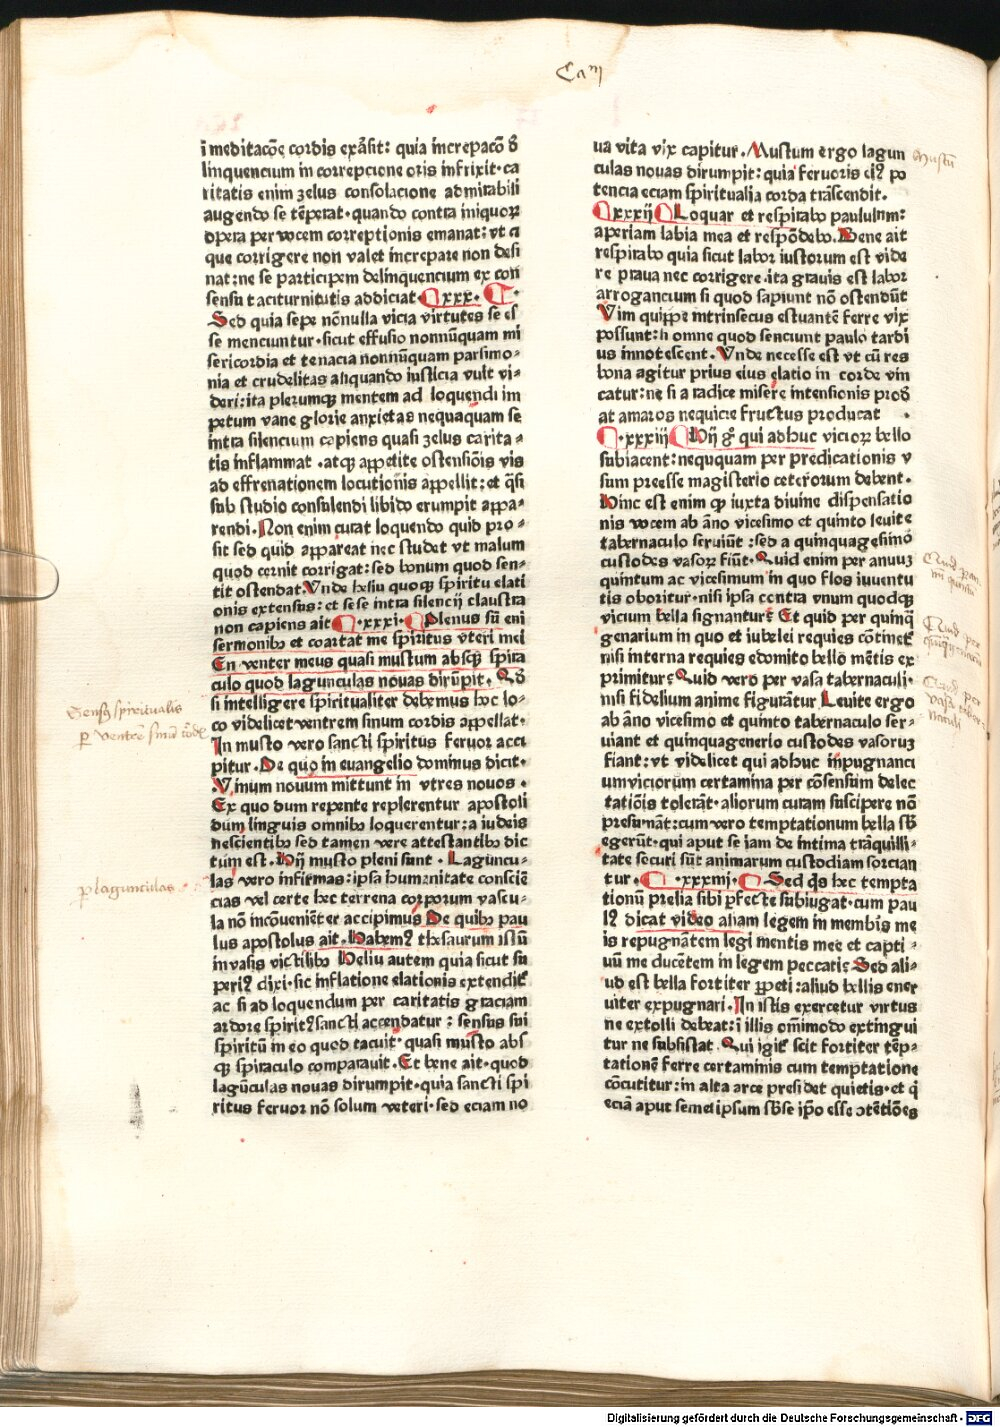 Cam
i meditacōe cordis exāsit: quia increpacō d̄
linquencium in correpcione oris infrixit·ca
ritatis enim zelus consolacione admirabili
augendo se tēperat·quando contra iniquoꝝ
opera per vocem correptionis emanat: vt a
que corrigere non valet increpare non desi
nat: ne se participem delinquencium ex con
sensu taciturnitatis addiciat·xxx·
Sed quia sepe nōnulla vicia virtutes se es
se menciuntur·sicut effusio nonnūquam mi
sericordia et tenacia nonnūquam parsimo-
nia et crudelitas aliquando iusticia vult vi-
deri: ita plerumqꝫ mentem ad loquendi im
petum vane glorie anxietas nequaquam se
intra silencium capiens quasi zelus carita-
tis inflammat·atqꝫ appetite ostensiōis vis
ad effrenationem locutionis appellit: et q̄si
sub studio consulendi libido erumpit appa-
rendi. Non enim curat loquendo quid pro-
sit sed quid appareat nec studet vt malum
quod cernit corrigat: sed bonum quod sen-
tit ostendat. Vnde heliu quoqꝫ spiritu elati
onis extensus: et se se intra silencij claustra
non capiens ait·xxxi·Plenus sū eni
sermonibꝫ et coartat me spiritus vteri mei
En venter meus quasi mustum absqꝫ spira
culo quod lagunculas nouas dirūpit. Qd̄
si intelligere spiritualiter debemus hoc lo-
co videlicet ventrem sinum cordis appellat·
In musto vero sancti spiritus feruor acci
pitur. De quo in euangelio dominus dicit·
Vinum nouum mittunt in vtres nouos·
Ex quo dum repente replerentur apostoli
dum linguis omnibꝫ loquerentur: a iudeis
nescientibꝫ sed tamen vere attestantibꝫ dic
tum est. Hij musto pleni sunt. Laguncu-
las vero infirmas: ipsa humanitate conscīē
cias vel certe hec terrena corporum vascu-
la nō incōueniēter accipimus De quibꝫ pau
lus apostolus ait. Habemꝰ thesaurum istū
in vasis victilibꝫ Heliu autem quia sicut su
periꝰ dixi·sic inflatione elationis extenditᷣ
ac si ad loquendum per caritatis graciam
ardore spiritꝰ sancti accendatur: sensus sui
spiritū in eo quod tacuit·quasi musto abs
qꝫ spiraculo comparauit. Et bene ait·quod
lagūculas nouas dirumpit·quia sancti spi
ritus feruor nō solum veteri·sed eciam no
Sensus spiritualis
p ventrē
p lagunculas
ua vita vix capitur. Mustum ergo lagun
culas nouas dirumpit: quia feruoris eiꝰ po
tencia eciam spiritualia corda trāscendit.
xxxij Loquar et respirabo paululum:
aperiam labia mea et respōdebo. Bene ait
respirabo quia sicut labor iustorum est vide
re praua nec corrigere·ita grauis est labor
arrogancium si quod sapiunt nō ostendūt
Vim quippe intrinsecus estuantē ferre vix
possunt: si omne quod senciunt paulo tardi
us innotescent. Vnde necesse est vt cū res
bona agitur prius eius elatio in corde vin
catur: ne si a radice misere intensionis prod
at amaros nequicie fructus producat
·xxxiij Hij gͦ qui adhuc vicioꝝ bello
subiacent: neququam per predicationis v
sum preesse magisterio ceterorum debent·
Hinc est enim qꝫ iuxta diuine dispensatio
nis vocem ab āno vicesimo et quinto leuite
tabernaculo seruiūt: sed a quinquagesimo
custodes vasoꝝ fiūt·Quid enim per anuuꝫ
quintum ac vicesimum in quo flos iuuentu
tis oboritur·nisi ipsa contra vnum quodqꝫ
vicium bella signantur? Et quid per quinq̄
genarium in quo et iubelei requies cōtinetᷣ
nisi interna requies edomito bello mētis ex
primitur? Quid vero per vasa tabernaculi·
nisi fidelium anime figurātur Leuite ergo
ab āno vicesimo et quinto tabernaculo ser-
uiant et quinquagenerio custodes vasoruꝫ
fiant: vt videlicet qui adhuc inpugnanci
um viciorum certamina per cōsensum delec
tatiōis tolerāt·aliorum curam suscipere nō
presumāt: cum vero temptationum bella sb̄
egerūt·qui aput se iam de intima trāquilli-
tate securi sūt animarum custodiam sorcian
tur. ·xxxiiij· Sed q̄s hec tempta
tionū prelia sibi ꝑfecte subiugat·cum pau
lꝰ dicat video aliam legem in membris me
is repugnātem legi mentis mee et capti-
uū me ducētem in legem peccati? Sed ali-
ud est bella fortiter ꝑpeti: aliud bellis ener
uiter expugnari. In istis exercetur virtus
ne extolli debeat: ī illis omīmodo extingui
tur ne subsistat. Qui igitᷣ scit fortiter tēp-
tationē ferre certaminis cum temptatione
cōcutitur: in alta arce presidet quietis·et q̄
eciā aput semet ipsum sb̄se ip̄o esse ↄtētiōes
Mustū
Quid per
Quid per
Quid per
vasa taber-
naculi
Digitalisierung gefördert durch die Deutsche Forschungsgemeinschaft · DFG